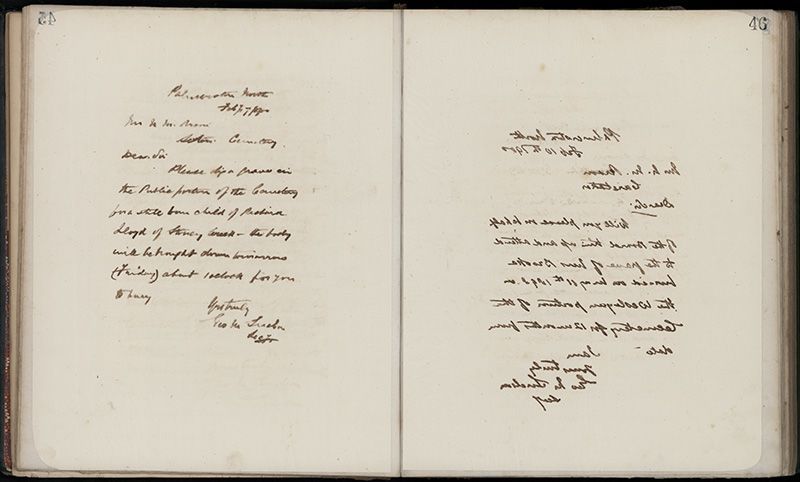 45
Palmerston North
Feby 7
Mr
Sexton Cemetery
Dear Sir
Please dig a grave in
the Public portion of the Cemetery
for a still born child of Richard
Lloyd of Stoney Creek - the body
will be brought down tomorrow
(Friday) about 1 oclock for you
to bury
Yrs truly
Geo
Secy
46
Palmerston North
Feby 10th 1900
Mr
Caretaker
Dear Sir
Will you please on behalf
of the Board tidy up and attend
to the grave of Brooke
buried on May 11th in
the Wesleyan portion of the
Cemetery for 12 months from
date
I am
yours truly
Geo
Secy